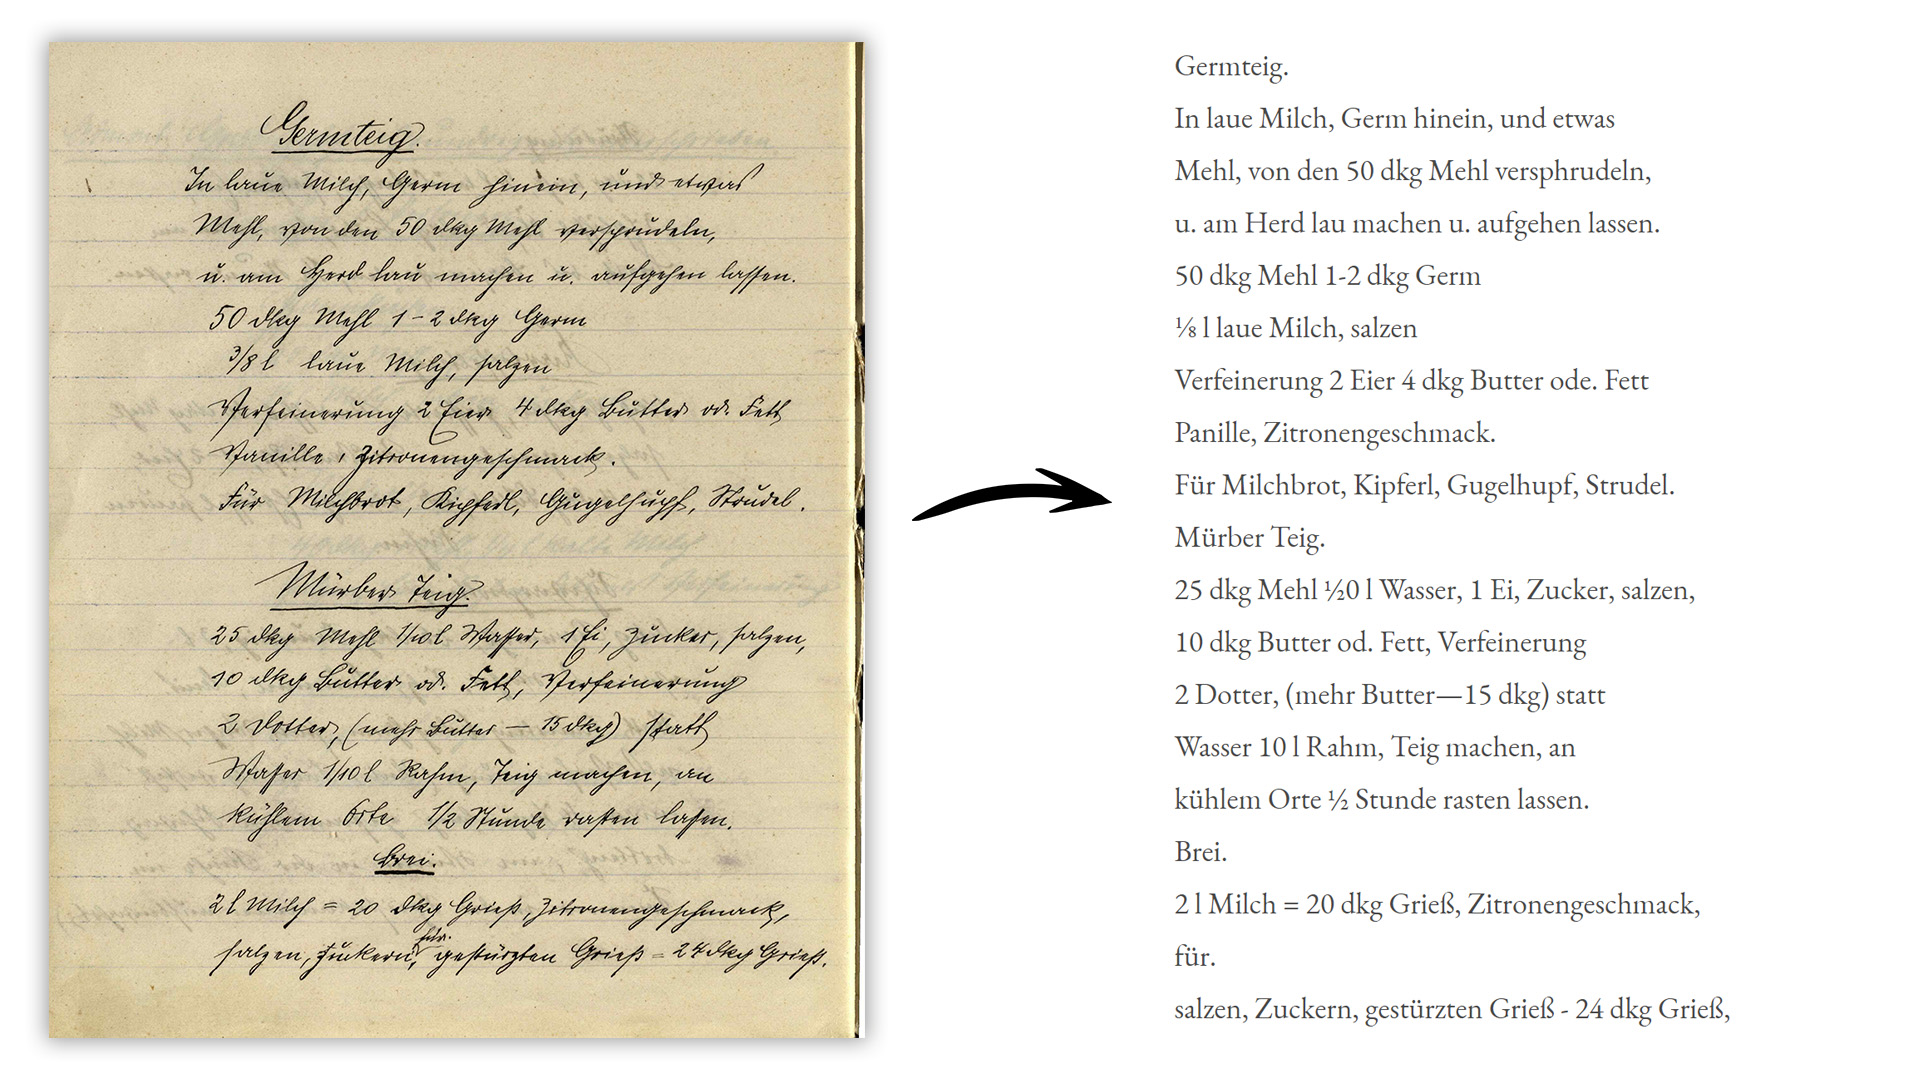 Germteig.
In laue Milch, Germ hinein, und etwas
Mehl, von den 50 dkg Mehl versprudeln,
u. am Herd lau machen u. aufgehen lassen.
50 dkg Mehl 1-2 dkg Germ
3/8 l laue Milch, salzen
Verfeinerung 2 Eier 4 dkg Butter od. Fett
Vanille, Zitronengeschmack.
Für Milchbrot, Kipferl, Gugelhupf, Strudel.
Mürber Teig.
25 dkg Mehl 1/10 l Wasser, 1 Ei, Zucker, salzen,
10 dkg Butter od. Fett, Verfeinerung
2 Dotter, (mehr Butter — 15 dkg) statt
Wasser 1/10 l Rahm, Teig machen, an
kühlem Orte 1/2 Stunde rasten lassen.
Brei.
2 l Milch = 20 dkg Grieß, Zitronengeschmack,
für.
salzen, zuckern, gestürzten Grieß - 24 dkg Grieß.
Germteig.
In laue Milch, Germ hinein, und etwas
Mehl, von den 50 dkg Mehl versphrudeln,
u. am Herd lau machen u. aufgehen lassen.
50 dkg Mehl 1-2 dkg Germ
⅛ l laue Milch, salzen
Verfeinerung 2 Eier 4 dkg Butter ode. Fett
Panille, Zitronengeschmack.
Für Milchbrot, Kipferl, Gugelhupf, Strudel.
Mürber Teig.
25 dkg Mehl ½0 l Wasser, 1 Ei, Zucker, salzen,
10 dkg Butter od. Fett, Verfeinerung
2 Dotter, (mehr Butter—15 dkg) statt
Wasser 10 l Rahm, Teig machen, an
kühlem Orte ½ Stunde rasten lassen.
Brei.
2 l Milch = 20 dkg Grieß, Zitronengeschmack,
für.
salzen, Zuckern, gestürzten Grieß - 24 dkg Grieß,